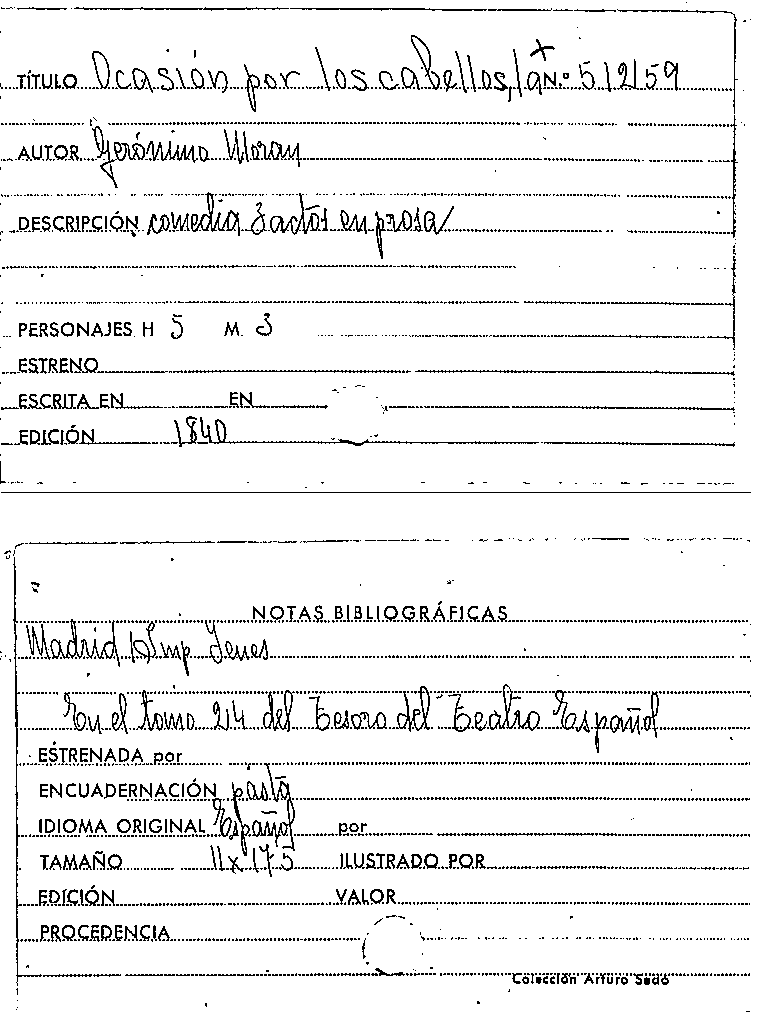 TÍTULO Ocasión por los cabellos, la N.º 51259
AUTOR Gerónimo Moran
DESCRIPCIÓN comedia 3 actos en prosa
PERSONAJES H 5 M. 3
ESTRENO
ESCRITA EN EN
EDICIÓN 1840
NOTAS BIBLIOGRÁFICAS
Madrid Imp Yenes
En el tomo 24 del Tesoro del Teatro Español
ESTRENADA por
ENCUADERNACIÓN pasta
IDIOMA ORIGINAL Español por
TAMAÑO 11x175 ILUSTRADO POR
EDICIÓN VALOR
PROCEDENCIA
Colección Arturo Sedó